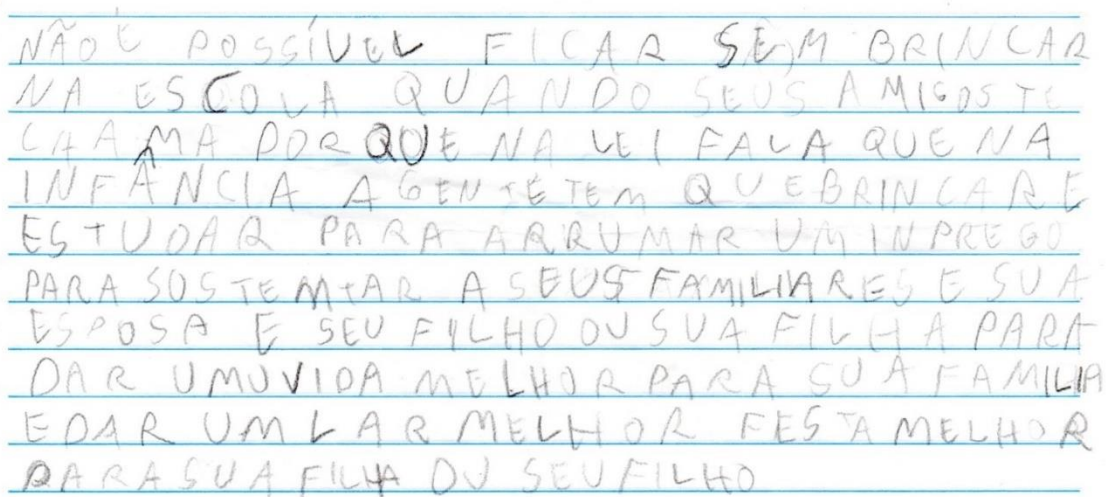 NÃO É POSSÍVEL FICAR SEM BRINCAR
NA ESCOLA QUANDO SEUS AMIGOS TE
CHAMA PORQUE NA LEI FALA QUE NA
INFÂNCIA AGENTE TEM QUEBRINCAR E
ESTUDAR PARA ARRUMAR UM INPREGO
PARA SUSTEMTAR A SEUS FAMILIARES E SUA
ESPOSA E SEU FILHO OU SUA FILHA PARA
DAR UMUVIDA MELHOR PARA SUA FAMILIA
EDAR UM LAR MELHOR FESTA MELHOR
PARA SUA FILHA OU SEU FILHO